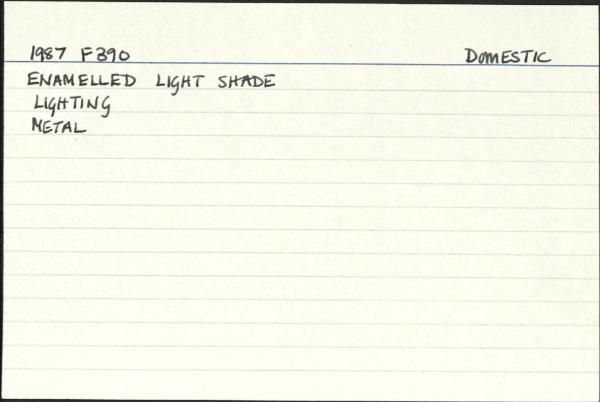 1987 F390 DOMESTIC
ENAMELLED LIGHT SHADE
LIGHTING
METAL